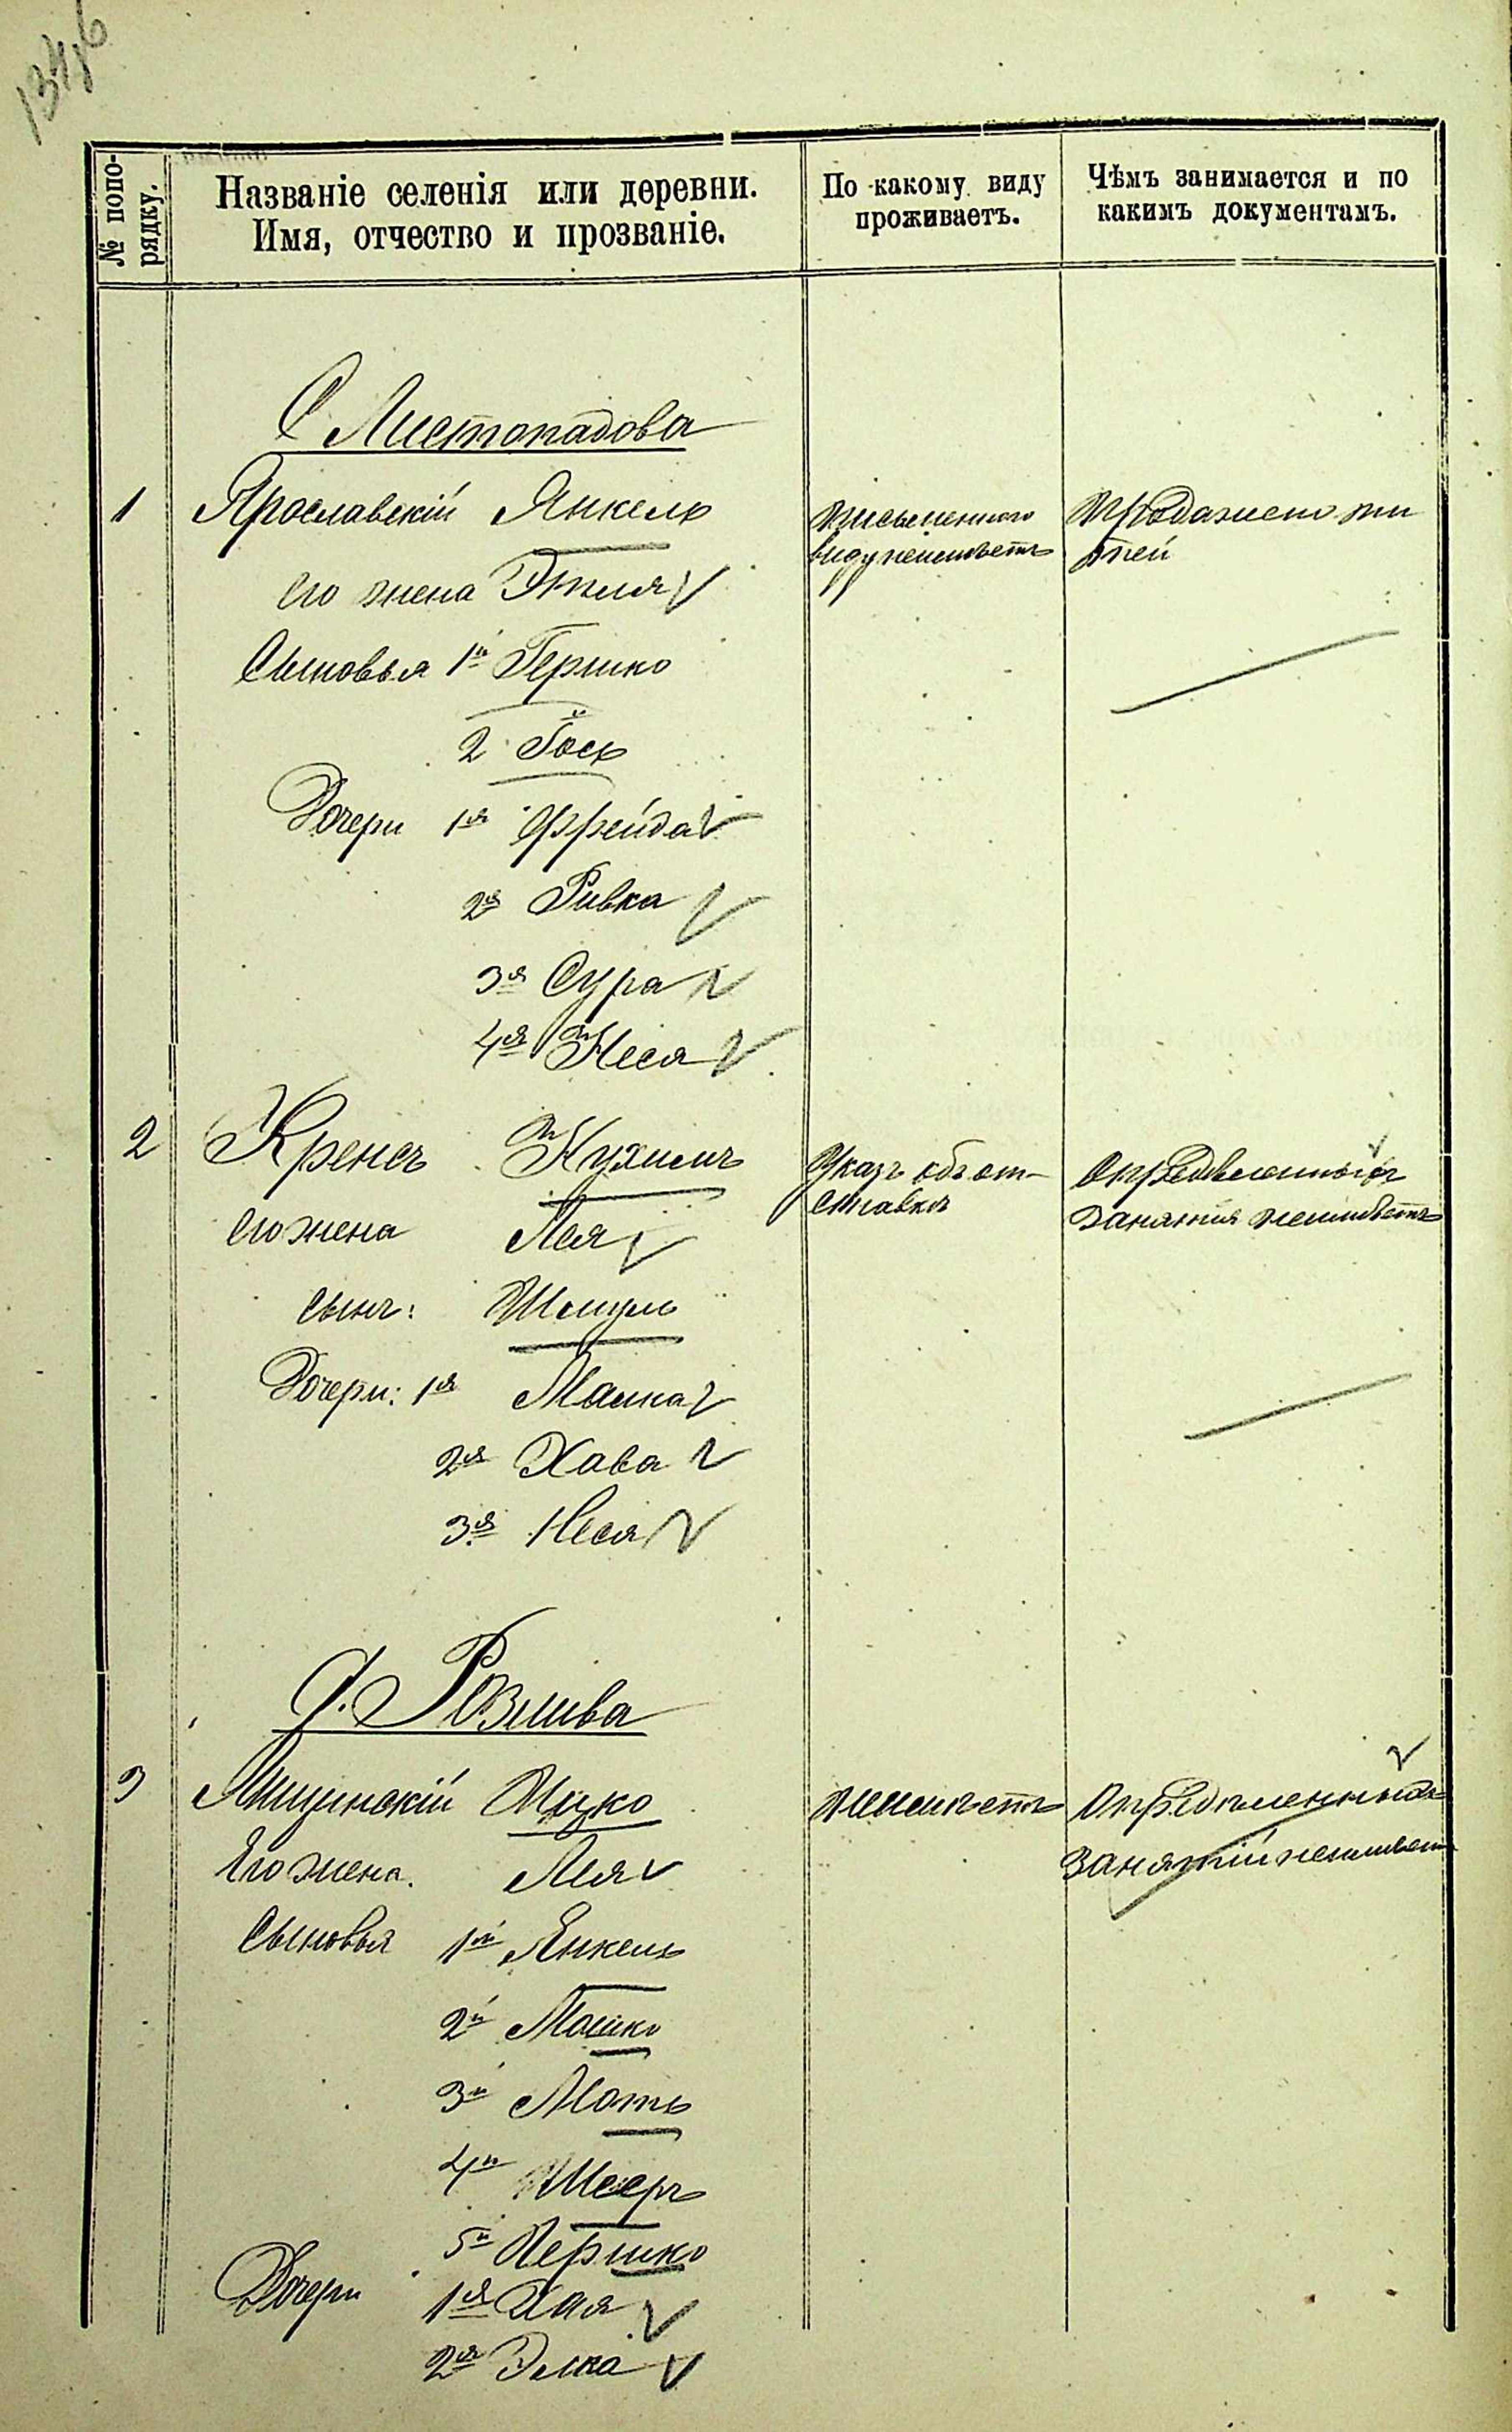 № попо-
рядку.
Названіе селенія или деревни.
Имя, отчество и прозваніе.
По какому виду
проживаетъ.
Чѣмъ занимается и по
какимъ документамъ.
С Листопадова
1 Ярославскій Янкель
письменного
виду неимѣетъ
Продажею пи
тей
его жена Этля
Сыновья 1й Гершко
2й Іось
Дочери 1я Фрейда
2я Ривка
3я Сура
4я Неся
2 Кренсъ Нухимъ
Указъ объ от-
ставки
Определенныхъ
занятия неимѣетъ
его жена Лея
Сынъ: Шмуль
Дочери: 1я Малка
2я Хава
3я Неся
Розлива
3 Мицко
неимѣетъ
Определенныхъ
занятій неимѣетъ
Его жена. Лея
Сыновья 1й Янкель
2й Мошко
3й Моть
4й Мееръ
5й Гершко
Дочери 1я Хая
2я Элка